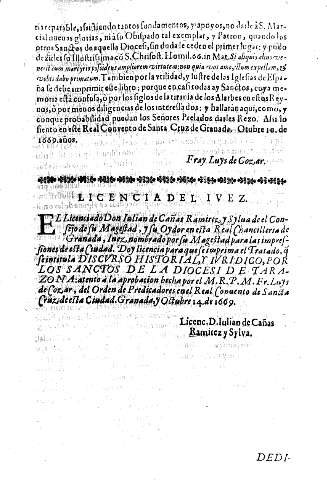 nia reparable, assistiendo tantos fundamentos, y apoyos, no darle à S. Mar-
cial nueuas glorias, ni à su Obispado tal exemplar, y Patron, quando los
otros Sanctos de aquella Diocesi, sin duda le ceden el primer lugar; y pudo
dezirles su Illustrissima cō S. Chrisost. Homil. 60. in Mat. Si aliquis alius
martyrij
vobis dabo primatum. Tambien por la vtilidad, y lustre de las Iglesias de Espa-
ña se debe imprimir este libro; porque en casi todas ay Sanctos, cuya me-
moria està confusa, ò por los siglos de la tirania de los Alarbes en estos Rey-
nos, ò por menos diligencias de los interessados; y hallaràn aqui, como, y
con que probabilidad puedan los Señores Prelados darles Rezo. Assi lo
siento en este Real Convento de Santa Cruz de Granada. Otubre 10. de
1669. años.
Fray Luys de Cozar.
LICENCIA DEL IVEZ.
EL Licenciado Don Iulian de Cañas Ramirez, y Sylua del Con-
sejo de su Magestad, y su Oydor en esta Real Chancilleria de
Granada, Iuez, nombrado por su Magestad para las impres-
siones de esta Ciudad. Doy licencia para que se imprima el Tratado, q̃
se intitula DISCVRSO HISTORIAL, Y IVRIDICO, POR
LOS SANCTOS DE LA DIOCESI DE TARA-
ZONA: atento à la aprobacion hecha por el M.R.P.M. Fr. Luys
de Cozar, del Orden de Predicadores en el Real Convento de Sancta
Cruz, de esta Ciudad. Granada, y Octubre 14. de 1669.
Licenc. D. Iulian de Cañas
Ramirez y Sylva.
DEDI-